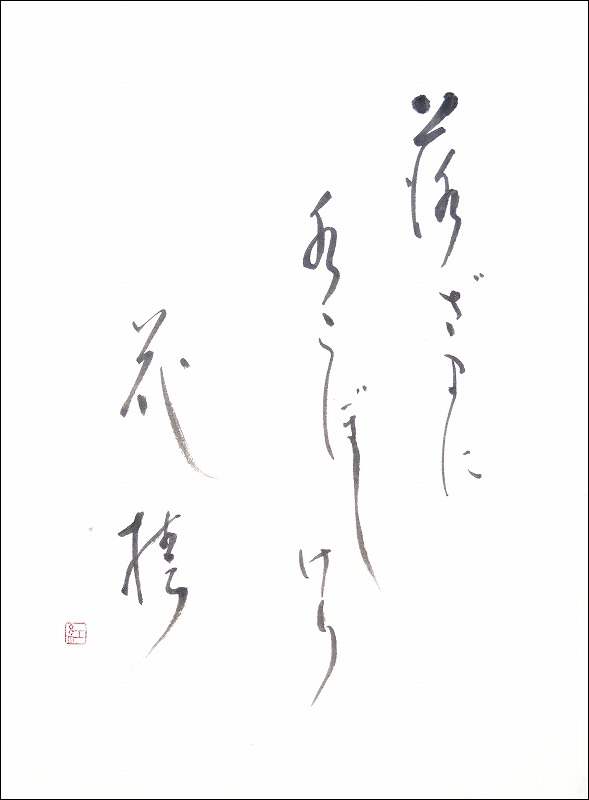 落ざまに
水こぼしけり
花椿